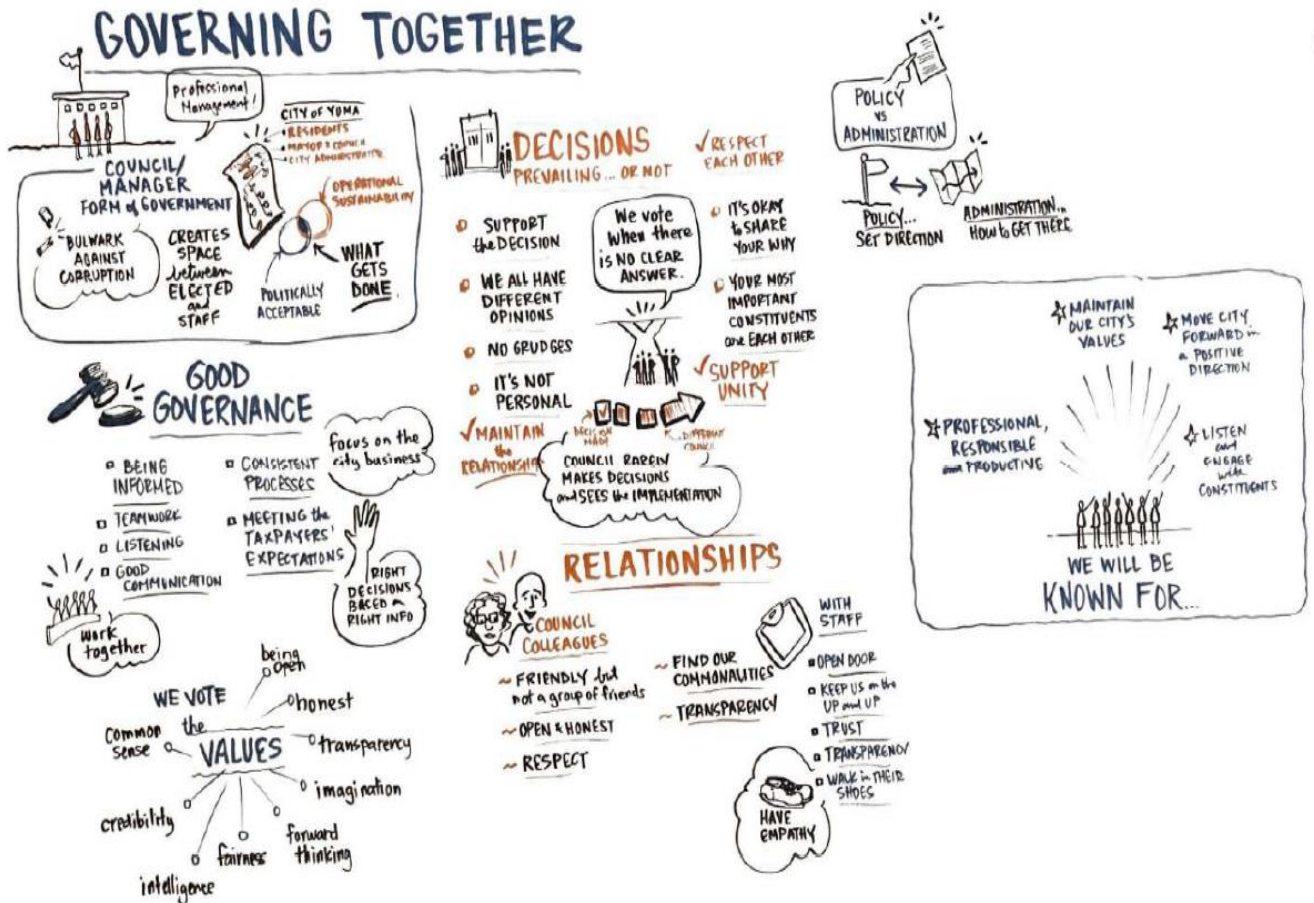 GOVERNING TOGETHER
Professional
Management!
CITY OF YUMA
• RESIDENTS
• MAYOR & COUNCIL
• CITY ADMINISTRATOR
COUNCIL/
MANAGER
FORM of GOVERNMENT
BULWARK
AGAINST
CORRUPTION
CREATES
SPACE
between
ELECTED
and
STAFF
OPERATIONAL
SUSTAINABILITY
POLITICALLY
ACCEPTABLE
WHAT
GETS
DONE.
GOOD
GOVERNANCE
BEING
INFORMED
TEAMWORK
LISTENING
GOOD
COMMUNICATION
CONSISTENT
PROCESSES
MEETING the
TAXPAYERS'
EXPECTATIONS
focus on the
city business
RIGHT
DECISIONS
BASED on
RIGHT INFO
work
together
WE VOTE
the
VALUES
being
open
honest
transparency
imagination
forward
thinking
fairness
intelligence
credibility
common
sense
DECISIONS
PREVAILING... OR NOT
✓ RESPECT
EACH OTHER
SUPPORT
the DECISION
WE ALL HAVE
DIFFERENT
OPINIONS
NO GRUDGES
IT'S NOT
PERSONAL
✓ MAINTAIN
the
RELATIONSHIP
We vote
when there
is NO CLEAR
ANSWER.
IT'S OKAY
to SHARE
YOUR WHY
YOUR MOST
IMPORTANT
CONSTITUENTS
are EACH OTHER
✓ SUPPORT
UNITY
DECISION
MADE
DIFFERENT
COUNCIL
COUNCIL RARELY
MAKES DECISIONS
and SEES the IMPLEMENTATION
RELATIONSHIPS
COUNCIL
COLLEAGUES
~ FRIENDLY but
not a group of friends
~ OPEN & HONEST
~ RESPECT
~ FIND OUR
COMMONALITIES
~ TRANSPARENCY
WITH
STAFF
OPEN DOOR
KEEP US on the
UP and UP
TRUST
TRANSPARENCY
WALK in THEIR
SHOES
HAVE
EMPATHY
POLICY
vs
ADMINISTRATION
POLICY...
SET DIRECTION
ADMINISTRATION...
HOW to GET THERE
MAINTAIN
OUR CITY'S
VALUES
MOVE CITY
FORWARD in
a POSITIVE
DIRECTION
PROFESSIONAL,
RESPONSIBLE
and PRODUCTIVE
LISTEN
and
ENGAGE
with
CONSTITUENTS
WE WILL BE
KNOWN FOR...